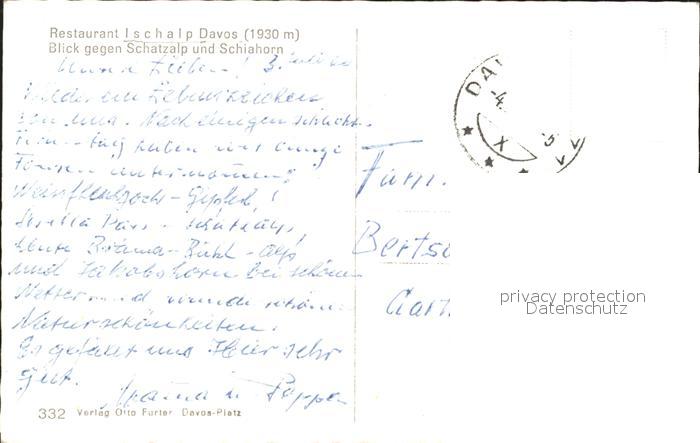 Restaurant Ischalp Davos (1930 m)
Blick gegen Schatzalp und Schiahorn
Lieben! 3. Juli
Wieder ein Lebenszeichen
von uns. Nach einigen
haben wir einige
Touren unternommen!
Weissfluhjoch-Gipfel,
Strela Pass - Schatzalp,
heute Bräma-Bühl-Alp
und Jakobshorn bei schönem
Wetter
Naturschönheiten.
Es gefällt uns hier sehr
gut.
Mama u. Pappa
332 Verlag Otto Furter Davos-Platz
DA
-4.
X
Fam.
Bertsc
Gart
privacy protection
Datenschutz